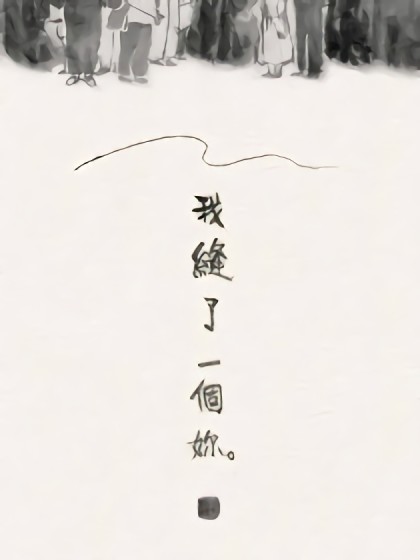 我縫了一個妳。